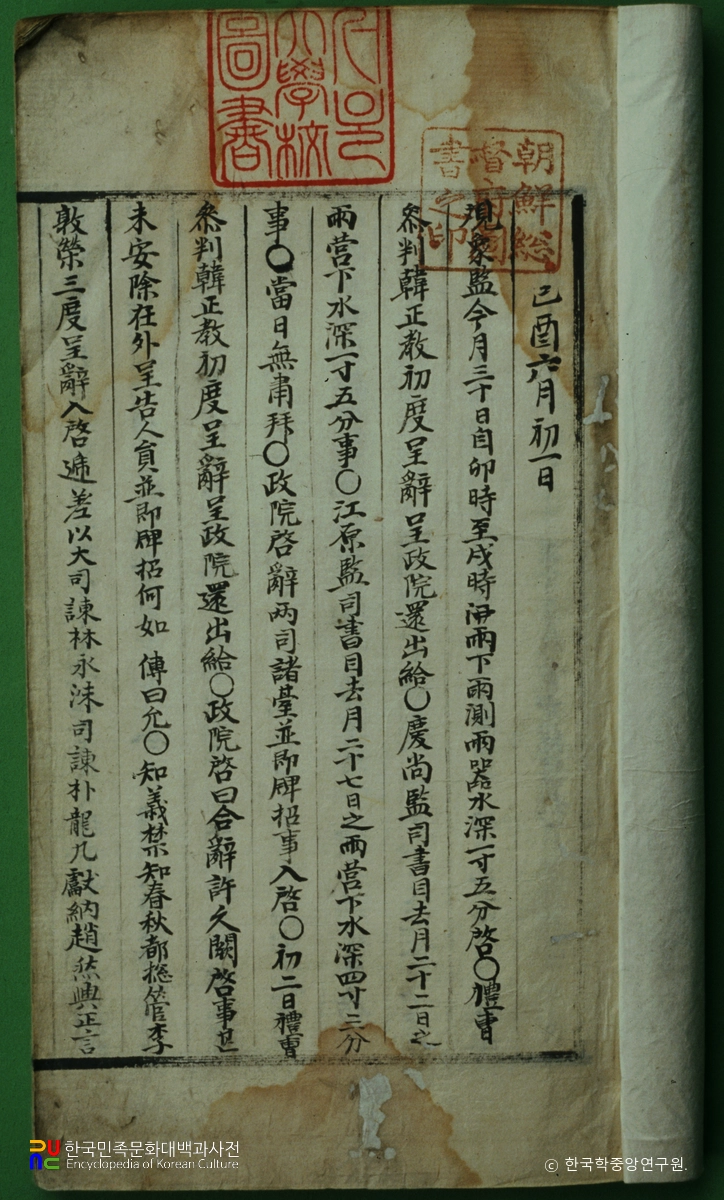 朝鮮総
督府圖
書之印
大學校
圖書
己酉六月初一日
現象監今月三十日自卯時至戌時洒雨下雨測雨器水深一寸五分啓○禮曹
參判韓正敎初度呈辭呈政院還出給○慶尙監司書目去月二十二日之
雨營下水深一寸五分事○江原監司書目去月二十七日之雨營下水深四寸三分
事○當日無肅拜○政院啓辭兩司諸臺並卽牌招事入啓○初二日禮曹
參判韓正敎初度呈辭呈政院還出給○政院啓曰合辭許久闕啓事甚
未安除在外呈告人員並卽牌招何如 傳曰允○知義禁知春秋都摠管李
敦榮三度呈辭入啓遞差以大司諫林永洙司諫朴龍九獻納趙然興正言
한국민족문화대백과사전
Encyclopedia of Korean Culture
ⓒ 한국학중앙연구원.